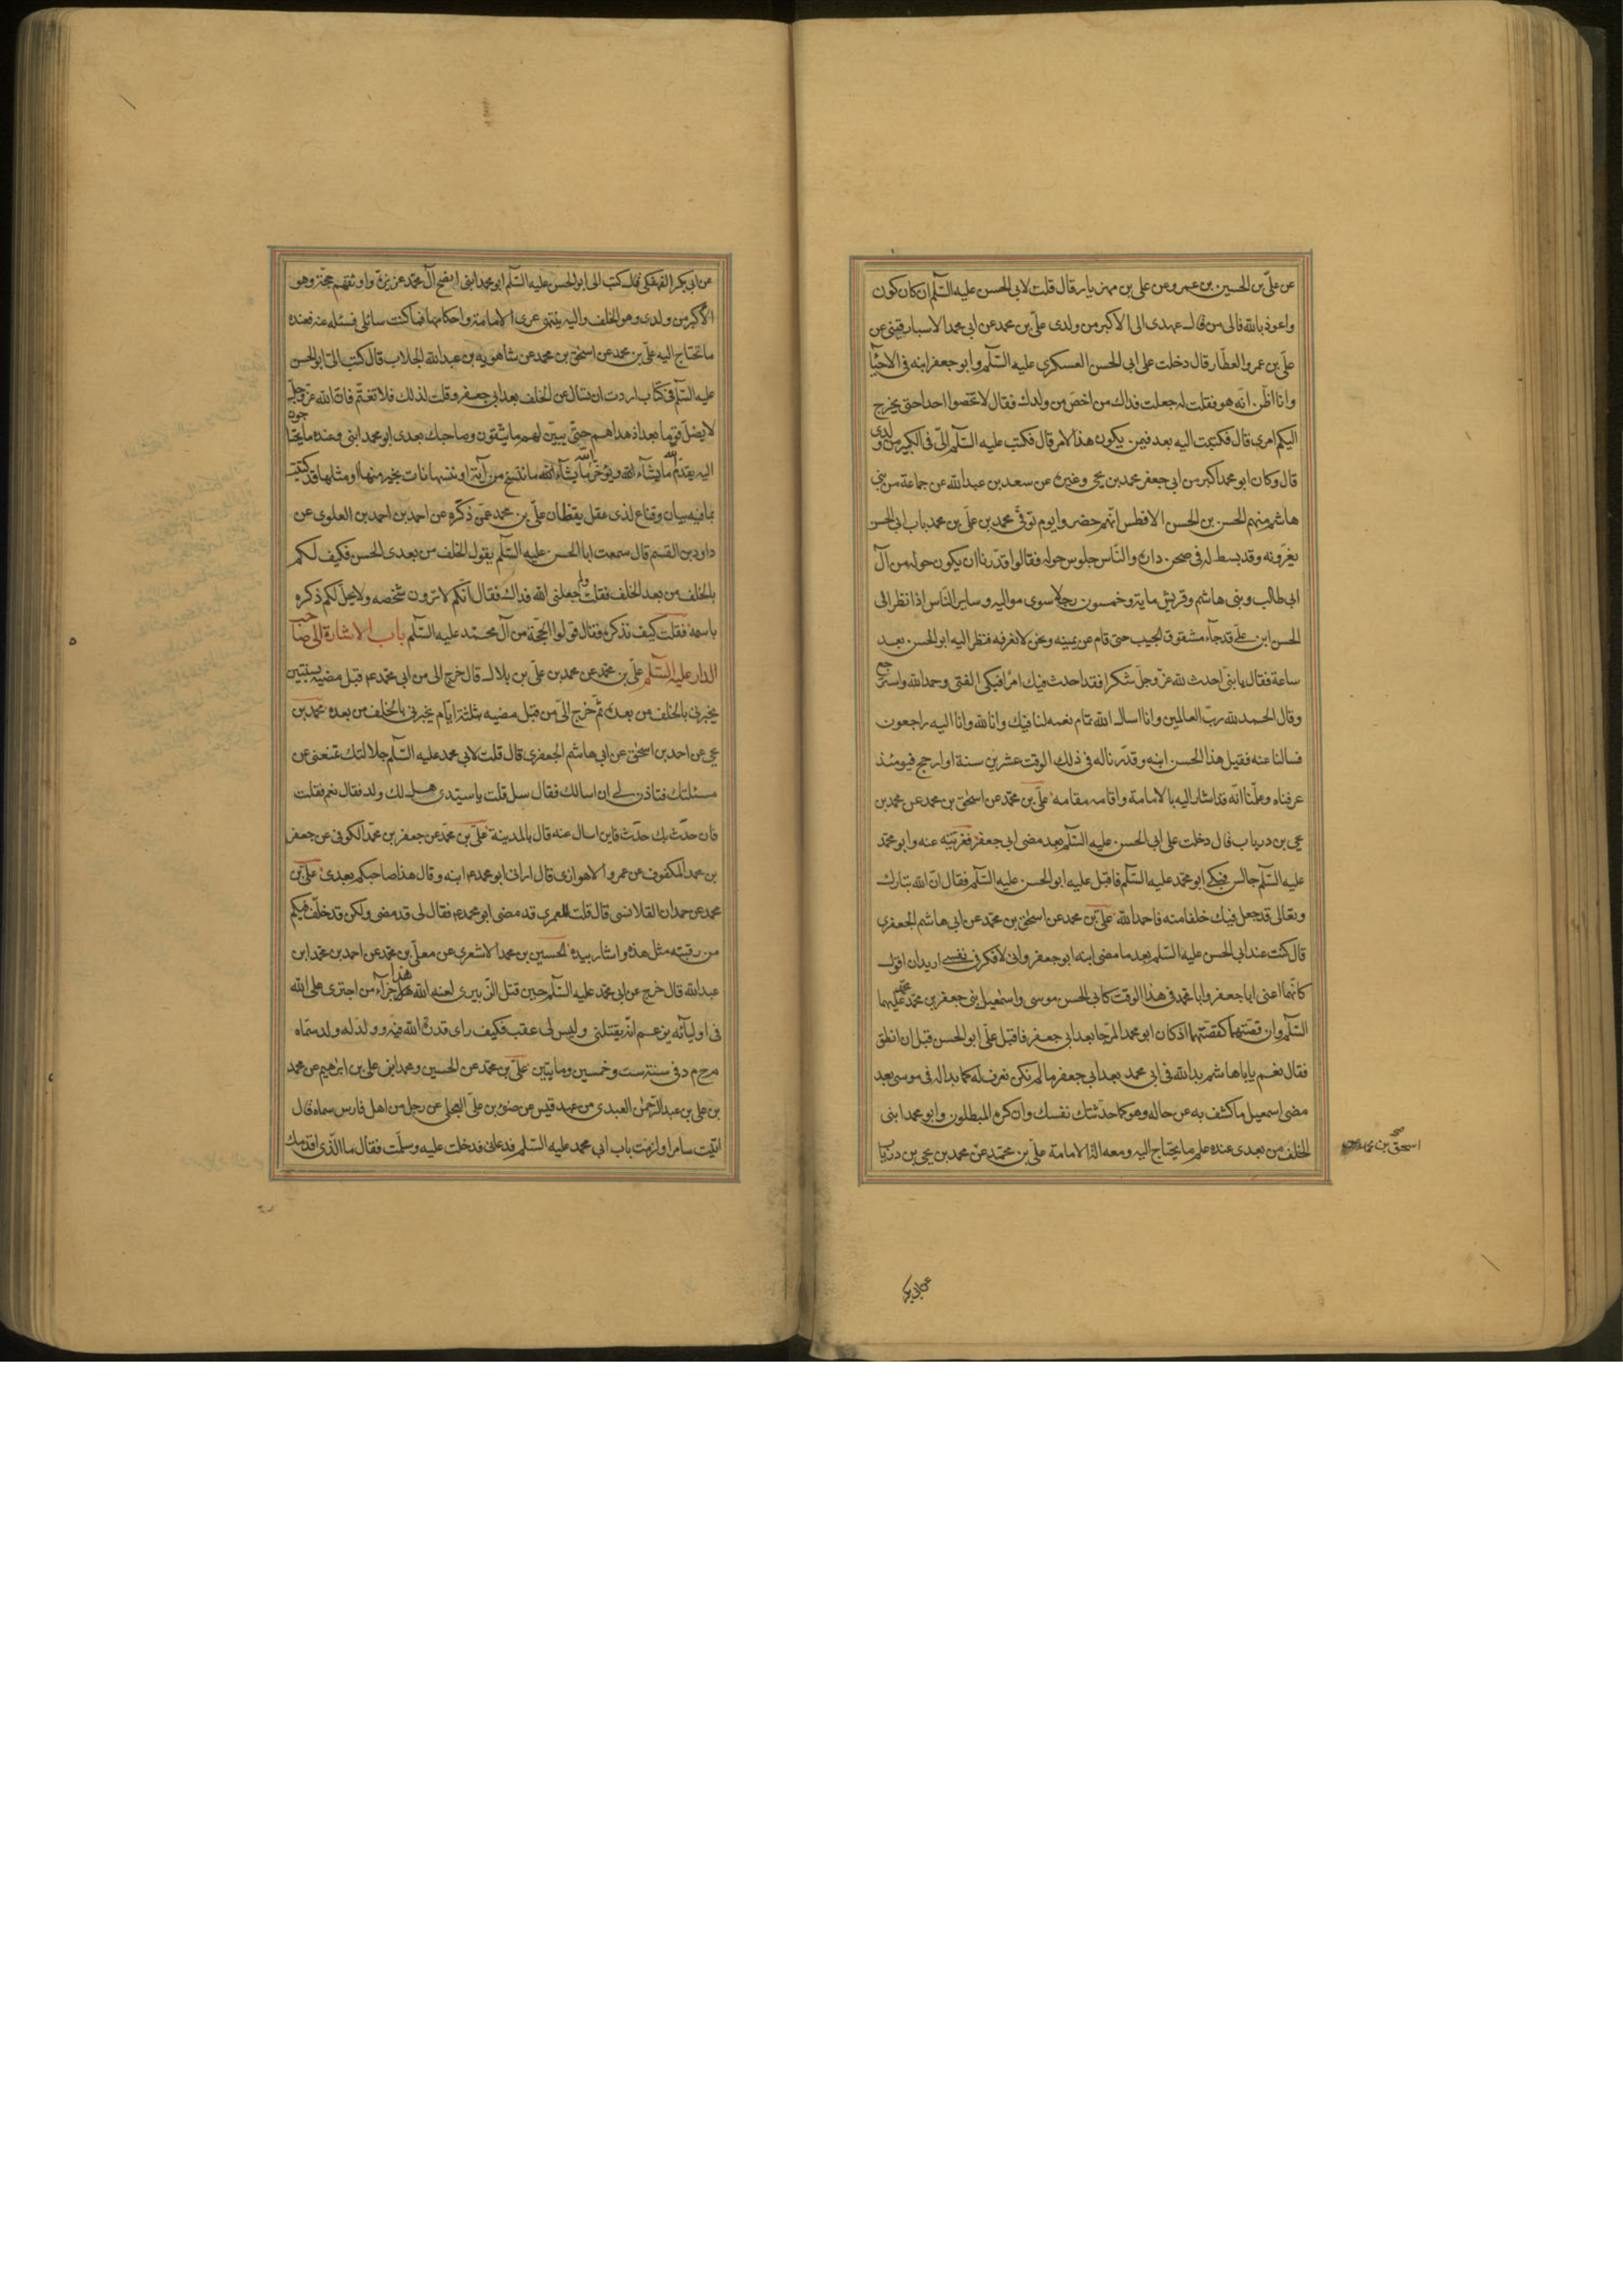 عن علیّ بن الحسین بن عمرو عن علی بن مهزیار قال قلت لابی الحسن علیه السّلم ان کان کون
واعوذ بالله فالی من قال عهدی الی الاکبر من ولدی علیّ بن محمد عن ابی محمد الاسبارقینی عن
علیّ بن عمرو العطّار قال دخلت علی ابی الحسن العسکری علیه السّلم وابو جعفر ابنه فی الاحیآ
وانا اظنّ انّه هو فقلت له جعلت فداك من اخصّ من ولدك فقال لا تخصوا احدا حتی یخرج
الیکم امری قال فکتبت الیه بعد فیمن یکون هذا الامر قال فکتب علیه السّلم الیّ فی الکبیر من ولدی
قال وکان ابو محمد اکبر من ابی جعفر محمد بن یحیی وغیره عن سعد بن عبد الله عن جماعة من بنی
هاشم منهم الحسن بن الحسن الافطس انّهم حضروا یوم توفّی محمد بن علیّ بن محمد باب ابی الحسن
یعزّونه وقد بسط له فی صحن داره والنّاس جلوس حوله فقالوا قدّرنا ان یکون حوله من آل
ابی طالب وبنی هاشم وقریش مایة وخمسون رجلا سوی موالیه وسایر النّاس اذا نظر الی
الحسن ابن علیّ قد جآء مشقوق الجیب حتی قام عن یمینه ونحن لا نعرفه فنظر الیه ابو الحسن بعد
ساعة فقال یا بنیّ احدث لله عزّ وجلّ شکرا فقد احدث فیك امرًا فبکی الفتی وحمد الله واسترجع
وقال الحمد لله ربّ العالمین وانا اسال الله تمام نعمه لنا فیك وانا لله وانا الیه راجعون
فسالنا عنه فقیل هذا الحسن ابنه وقدّرنا له فی ذلك الوقت عشرین سنة او ارجح فیومئذ
عرفناه وعلمنا انّه قد اشار الیه بالامامة واقامه مقامه علیّ بن محمّد عن اسحٰق بن محمد عن محمد بن
یحیی بن دریاب قال دخلت علی ابی الحسن علیه السّلم بعد مضی ابی جعفر فعزّیته عنه وابو محمّد
علیه السّلم جالس فبکی ابو محمّد علیه السّلم فاقبل علیه ابو الحسن علیه السّلم فقال انّ الله تبارك
وتعالی قد جعل فیك خلفا منه فاحمد الله علیّ بن محمد عن اسحٰق بن محمّد عن ابی هاشم الجعفری
قال کنت عند ابی الحسن علیه السّلم بعد ما مضی ابنه ابو جعفر وانی لافکر فی نفسی ارید ان اقول
کانّهما اعنی ابا جعفر وابا محمد فی هذا الوقت کابی الحسن موسی واسمٰعیل ابنی جعفر بن محمّد علیهما
السّلم وان قصّتهما کقصّتهما اذ کان ابو محمد المرجا بعد ابی جعفر فاقبل علیّ ابو الحسن قبل ان انطق
فقال نعم یا ابا هاشم بدا لله فی ابی محمد بعد ابی جعفر ما لم یکن نعرف له کما بدا له فی موسی بعد
مضی اسمعیل ما کشف به عن حاله وهو کما حدّثتك نفسك وان کره المبطلون وابو محمد ابنی
الخلف من بعدی عنده علم ما یحتاج الیه ومعه الة الامامة علیّ بن محمّد عن محمد بن یحیی بن دریاب
اسحق بن محمد صح
عن ابی بکر
عن ابی بکر الفهفکی قال کتب الی ابو الحسن علیه السّلم ابو محمد ابنی انصح آل محمّد غریزة واوثقهم حجّة وهو
الاکبر من ولدی وهو الخلف والیه ینتهی عری الامامة واحکامها فما کنت سائلی فسئله عنه فعنده
ما تحتاج الیه علیّ بن محمد عن اسحٰق بن محمد عن شاهویه بن عبد الله الجلاب قال کتب الیّ ابو الحسن
علیه السّلم فی کتاب اردت ان تسال عن الخلف بعد ابی جعفر وقلت لذلك فلا تغتمّ فانّ الله عزّ وجلّ
لا یضلّ قوما بعد اذ هداهم حتّی یبیّن لهم ما یتّقون وصاحبك بعدی ابو محمد ابنی وعنده ما یحتاجون
الیه یقدّم الله ما یشآء الله ویؤخّر الله ما یشآء الله ما ننسخ من آیة او ننسها نات بخیر منها او مثلها قد کتبت
بما فیه بیان وقناع لذی عقل یقظان علیّ بن محمد عمّن ذکره عن احمد بن احمد بن العلوی عن
داود بن القسم قال سمعت ابا الحسن علیه السّلم یقول الخلف من بعدی الحسن فکیف لکم
بالخلف من بعد الخلف فقلت ولم جعلنی الله فداك فقال انّکم لا ترون شخصه ولا یحلّ لکم ذکره
باسمه فقلت کیف نذکره فقال قولوا الحجّة من آل محمّد علیه السّلم باب الاشارة الی صاحب
الدار علیه السّلم علیّ بن محمّد عن محمد بن علیّ بن بلال قال خرج الی من ابی محمّد ع قبل مضیه بسنتین
یخبرنی بالخلف من بعده ثم خرج الیّ من قبل مضیه بثلثة ایّام یخبرنی بالخلف من بعده محمد بن
یحیی عن احمد بن اسحٰق عن ابی هاشم الجعفری قال قلت لابی محمد علیه السّلم جلالتك تمنعنی عن
مسئلتك فتاذن لی ان اسالك فقال سل قلت یا سیّدی هل لك ولد فقال نعم فقلت
فان حدث بك حدث فاین اسال عنه قال بالمدینة علیّ بن محمّد عن جعفر بن محمّد الکوفی عن جعفر
بن محمد المکفوف عن عمرو الاهوازی قال ارانی ابو محمد ع ابنه وقال هذا صاحبکم بعدی علیّ بن
محمد عن حمدان القلانسی قال قلت للعمری قد مضی ابو محمد ع فقال لی قد مضی ولکن قد خلّف فیکم
من رقبته مثل هذه واشار بیده الحسین بن محمد الاشعری عن معلّی بن محمّد عن احمد بن محمّد ابن
عبد الله قال خرج عن ابی محمّد علیه السّلم حین قتل الزّبیری لعنه الله هذا جزآء من اجتری علی الله
فی اولیآئه یزعم انّه یقتلنی ولیس لی عقب فکیف رای قدرة الله فیه وولد له ولد سمّاه
م ح م د فی سنة ست وخمسین ومایتین علیّ بن محمّد عن الحسین ومحمد ابنی علی بن ابرٰهیم عن محمد
بن علی بن عبد الرّحمٰن العبدی من عبد قیس عن ضوء بن علیّ العجلی عن رجل من اهل فارس سماه قال
اتیت سامرا ولزمت باب ابی محمد علیه السّلم فدعانی فدخلت علیه وسلّمت فقال ما الّذی اقدمك